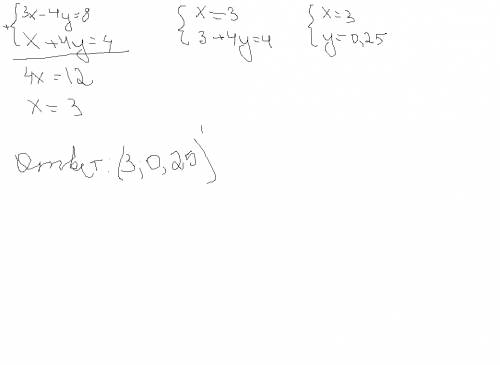 + { 3x-4y=8
x+4y=4
4x=12
x=3
{ x=3
3+4y=4
{ x=3
y=0,25
Ответ: (3, 0,25)